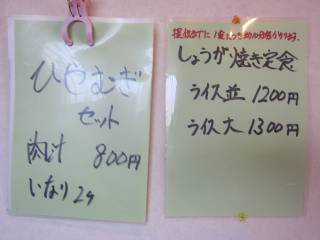 ひやむぎ
セット
肉汁 800円
いなり2ケ
提供までに1食につき約10分位かかります。
しょうが焼き定食
ライス並 1200円
ライス大 1300円